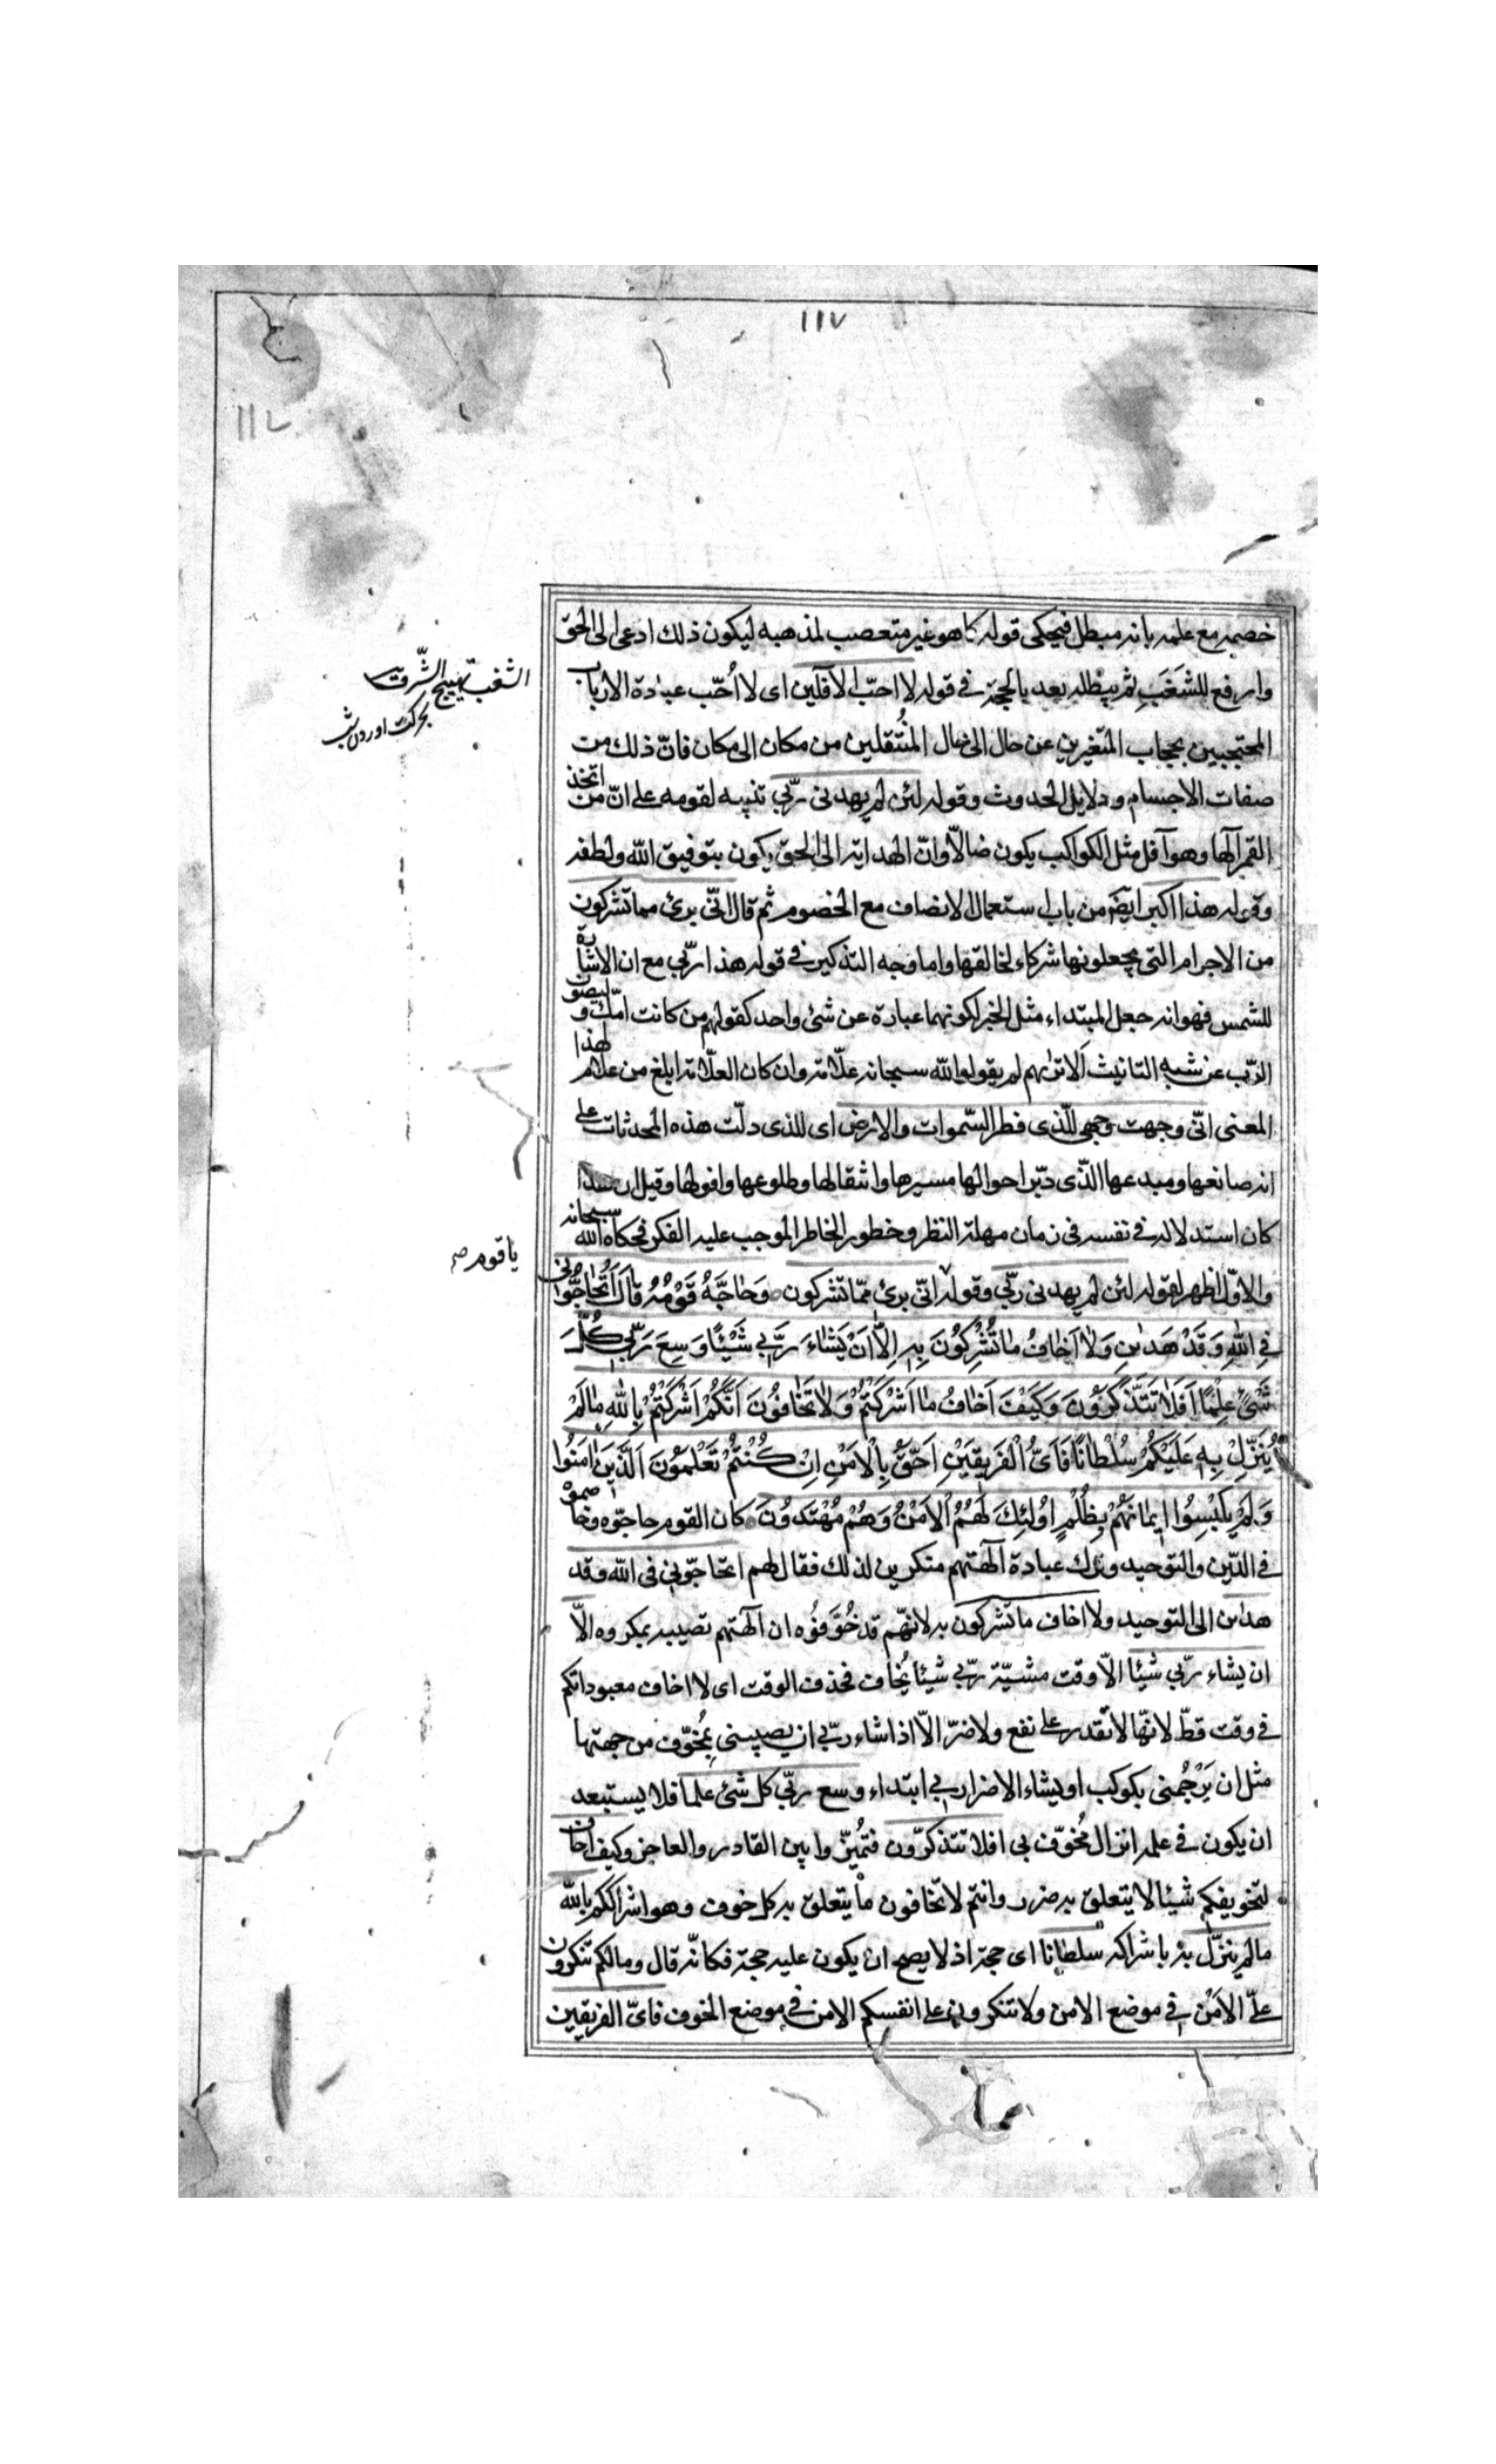 ١١٧
١١٧
خصمه مع علمه بانه مبطل فيحكى قوله كما هو غير متعصب لمذهبه ليكون ذلك ادعى الى الحق
وارفع للشَغَبِ ثم يبطله بعد بالحجة فى قوله لا احبّ الآفلين اى لا اُحّب عبادة الارباب
المحتجبين بحجاب المتغيرين عن حال الى حال المُنتقلين من مكان الى مكان فانّ ذلك من
صفات الاجسام ودلايل الحدوث وقوله لئن لم يهدنى ربّى تنبيه لقومه على انّ من اتخذ
القمر آلها وهو آفل مثل الكواكب يكون ضالّا وانّ الهداية الى الحق يكون بتوفيق الله ولطفه
وقوله هذا اكبر ايضَ من باب استعمال الانصاف مع الخصوم ثم قال انّى برئ مما تشركون
من الاجرام التى يجعلونها شركاء لخالقها واما وجه التذكير فى قوله هذا ربّى مع ان الاشارة
للشمس فهو انه جعل المبتداء مثل الخبر لكونهما عبارة عن شئ واحد كقولهم من كانت امّك وليصون
الربّ عن شبه التانيث الاتراهم لم يقولوا لله سبحانه علّامة وان كان العلّامة ابلغ من علّام لهذا
المعنى انّى وجهت وجهى للّذى فطر السّموات والارض اى للذى دلّت هذه المحدثات على
انه صانعها ومبدعها الذّى دبّر احوالها مسيرها وانتقالها وطلوعها وافولها وقيل ان هذا
كان استدلاله فى نفسه فى زمان مهلة النظر وخطور الخاطر الموجب عليه الفكر فحكاه الله سبحانه
والاوّل اظهر لقوله لئن لم يهدنى ربّى وقوله انّى برئ ممّا تشركون وَحٰاجَّهُ قَوْمُهُ قٰالَ اَتُحٰاجُّوٓنّى
فِى اللهِ وَقَدْ هَدٰينِ وَلٰا اَخٰافُ مٰا تُشْرِكُونَ بِهِ اِلّٰا اَنْ يَشٰاءَ رَبّى شَيْئًا وَسِعَ رَبّى كُلَّ
شَىْءٍ عِلْمًا اَفَلٰا تَتَذَكَّرُونَ وَكَيْفَ اَخٰافُ مٰا اَشْرَكْتُمْ وَلٰا تَخٰافُونَ اَنَّكُمْ اَشْرَكْتُمْ بِاللهِ مٰا لَمْ
يُنَزِّلْ بِهِ عَلَيْكُمْ سُلْطٰانًا فَاَىُّ الْفَرِيقَيْنِ اَحَقُّ بِالْاَمْنِ اِنْ كُنْتُمْ تَعْلَمُونَ اَلَّذِينَ اٰمَنُوا
وَلَمْ يَلْبِسُوا اِيمٰانَهُمْ بِظُلْمٍ اُولٰئِكَ لَهُمُ الْاَمْنُ وَهُمْ مُهْتَدُونَ كان القوم حاجّوه وخاصموه
فى الدّين والتوحيد وترك عبادة آلهتهم منكرين لذلك فقال لهم اتحاجّونى فى الله وقد
هدٰين الى التوحيد ولا اخاف ما تشركون به لانهّم قد خُوَّفُوه ان آلهتهم تصيبه بمكروه الّا
ان يشاء ربّى شيئا الّا وقت مشيّة ربّى شيئا يُخاف فحذف الوقت اى لا اخاف معبوداتكم
فى وقت قطّ لانهّا لا تقدر على نفع ولا ضرّ الّا اذا شاء ربّى ان يصيبنى بِمُخوّف من جهتها
مثل ان يَرْجُمنى بكوكب او يشاء الاضرار بى ابتداء وسع ربّى كل شئ علما فلا يستبعد
ان يكون فى علمه انزال مُخوّف بى افلا تتذكّرون فتُميّزوا بين القادر والعاجز وكيف اخاف
لتخويفكم شيئا لا يتعلق به ضرر وانتم لا تخافون ما يتعلق به كل خوف وهو اشراككم بالله
ما لم ينزّل به باشراكه سلطانا اى حجة اذ لا يصح ان يكون عليه حجة فكانّه قال ومالكم تنكرون
علىّ الامْن فى موضع الامن ولا تنكرون على انفسكم الامن فى موضع الخوف فاىّ الفريقين
الشغب تهييج الشّر
يا قوم صح